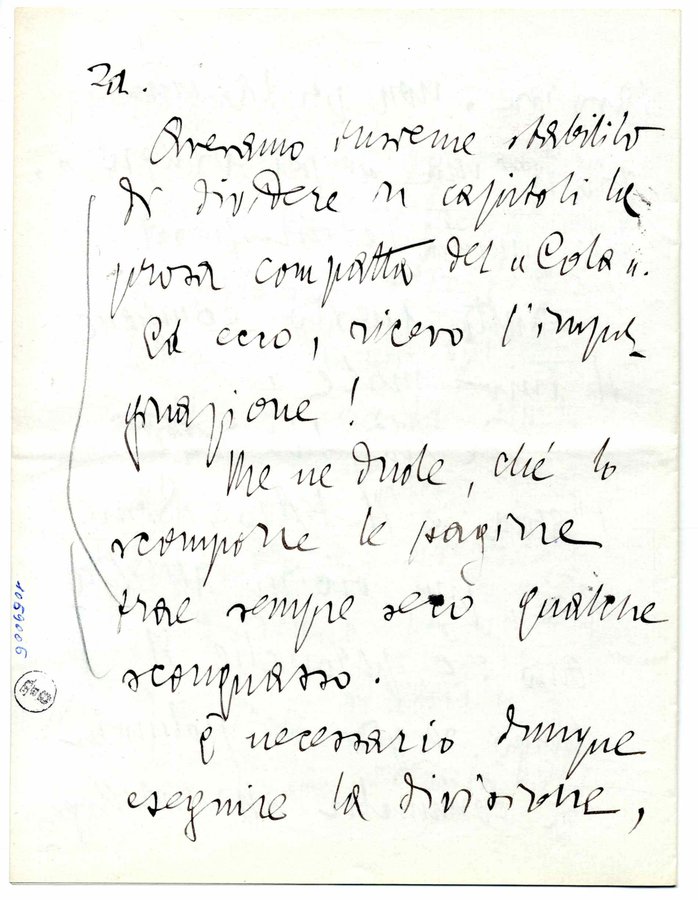 2a.
Avevamo insieme stabilito
di dividere in capitoli la
prosa compatta del "Cola".
Ed ecco, ricevo l'impa-
ginazione!
Me ne duole, ché lo
scomporre le pagine
trae sempre seco qualche
sconquasso.
È necessario dunque
eseguire la divisione,